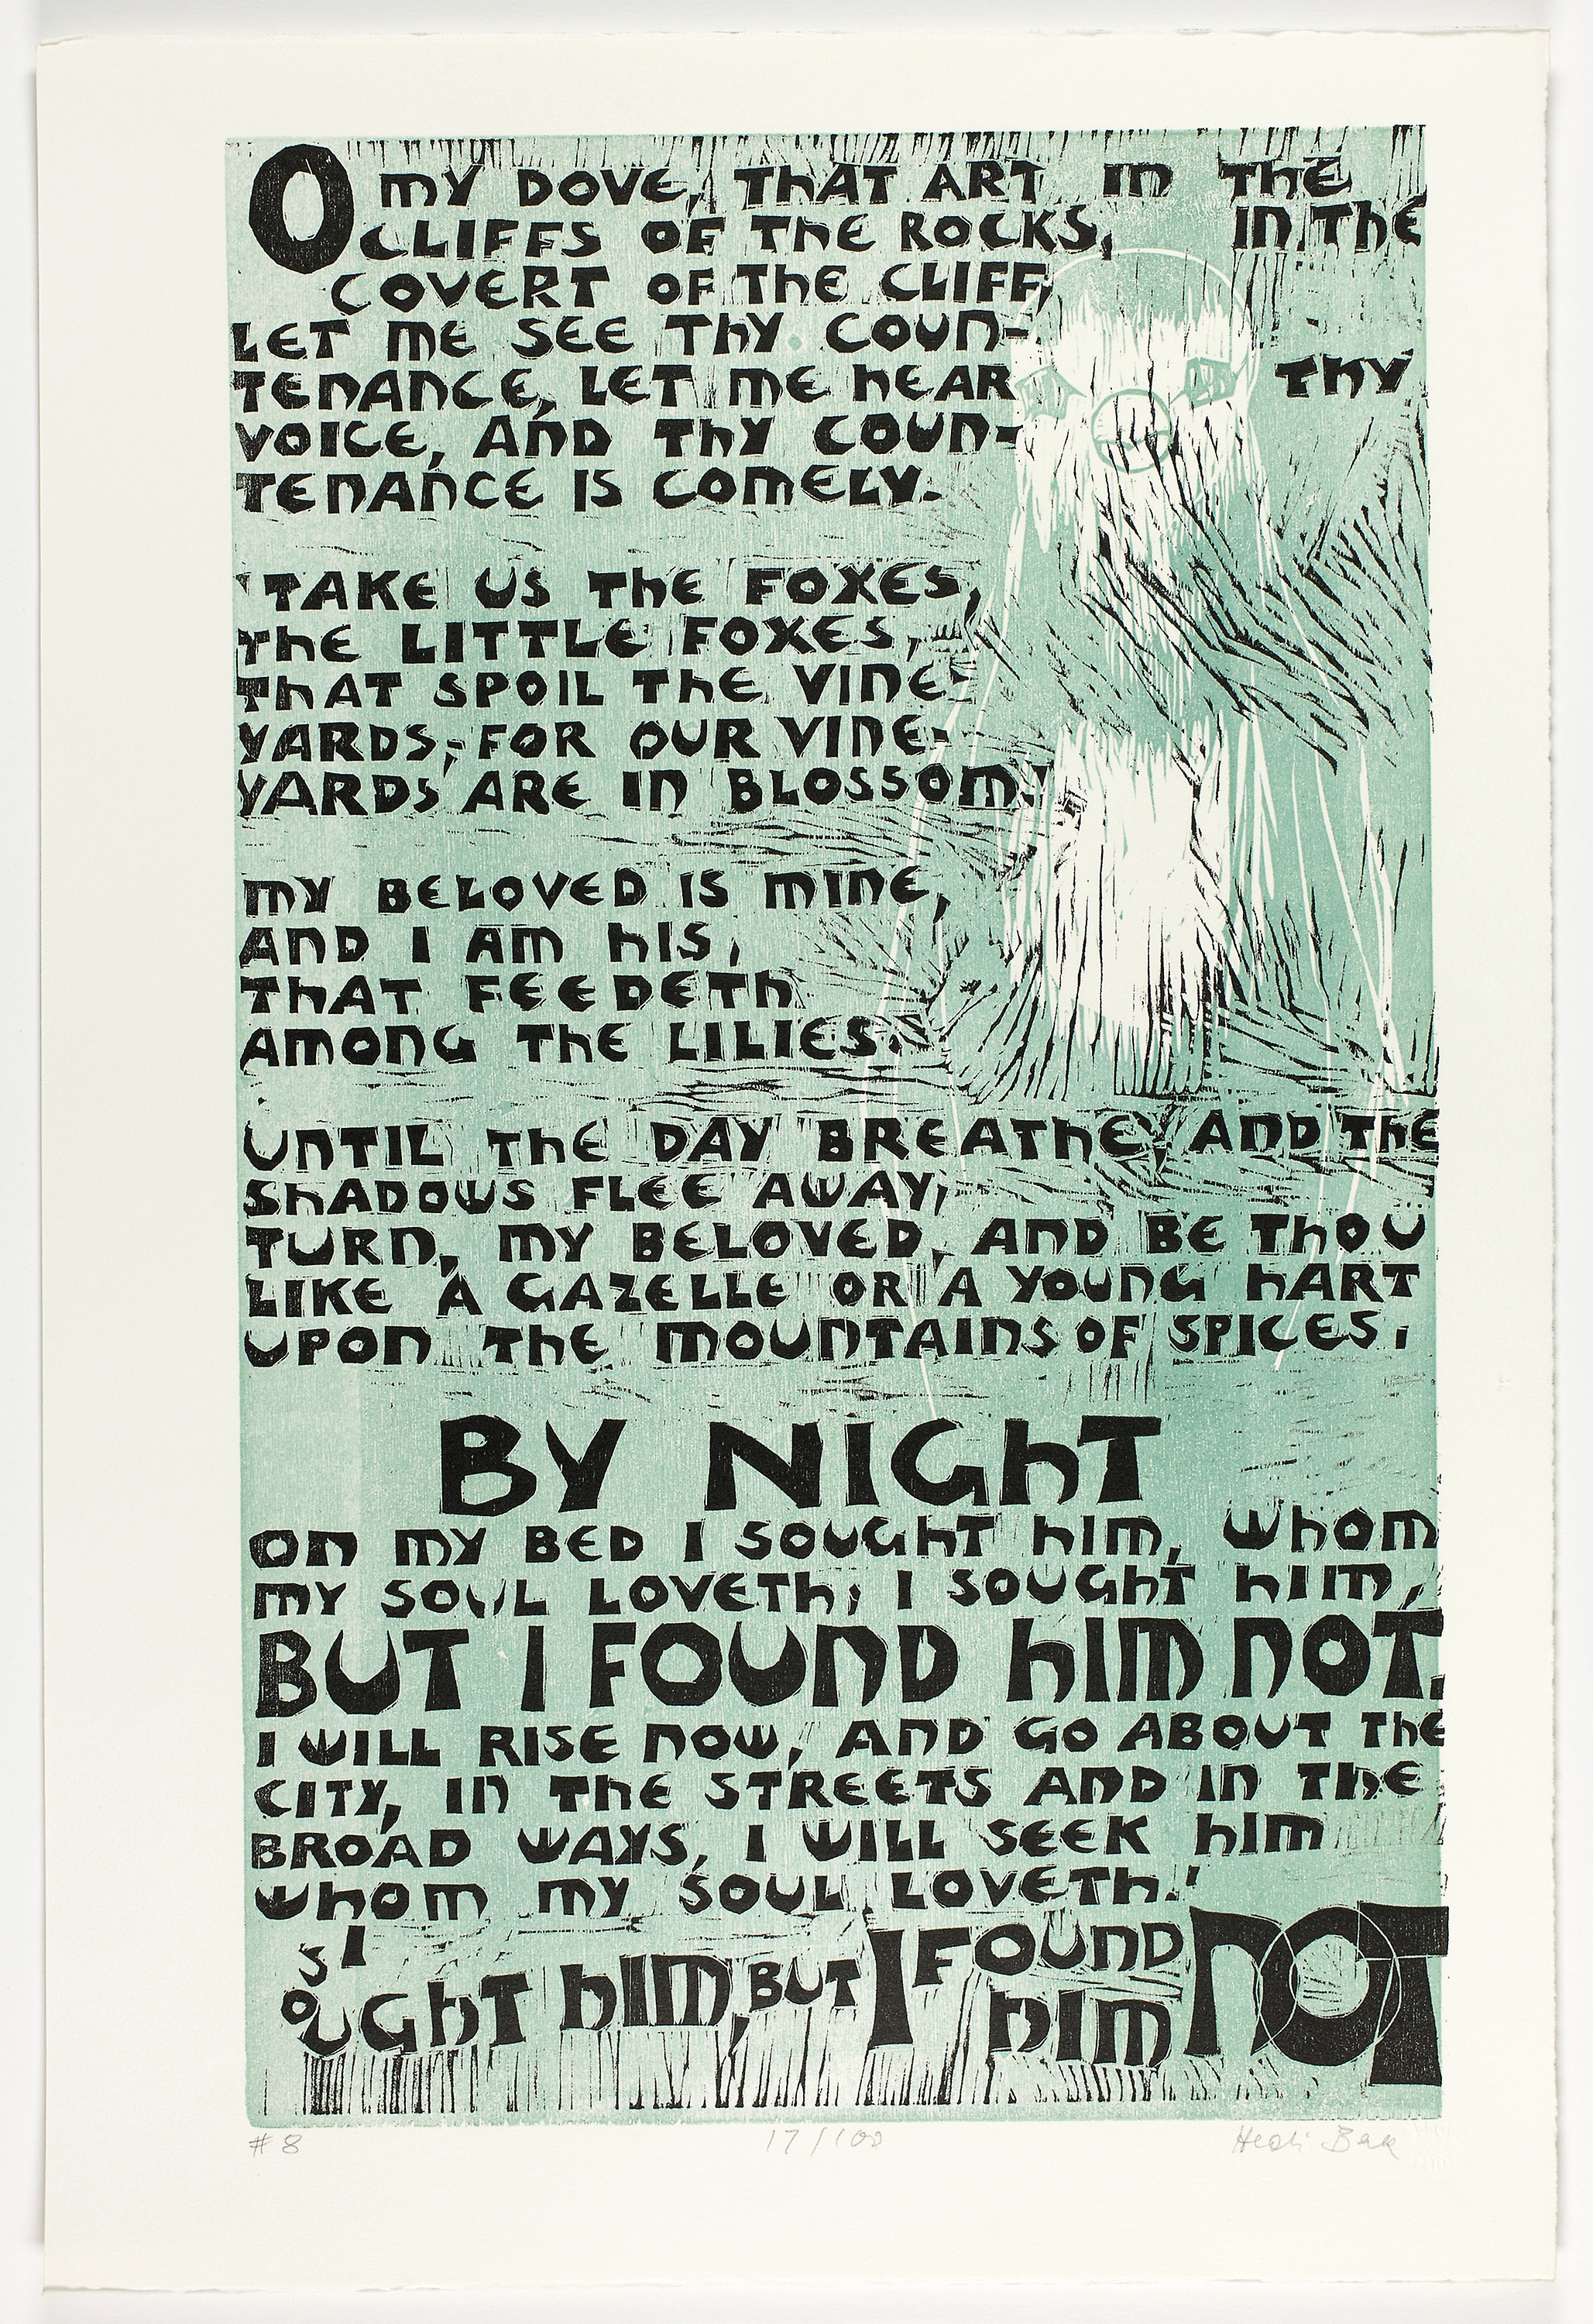 O my DOVE, ThAT ART in The
CLIFFS OF The ROCKS, in The
COVERT OF The CLIFF,
LET me SEE Thy COUn-
TEnAnCE, LET me hEAR Thy
VOICE, AnD Thy COUn-
TEnAnCE IS COmELY.
'TAKE US ThE FOXES,
ThE LITTLE FOXES,
ThAT SPOIL ThE VInE-
YARDS; FOR OUR VInE-
YARDS ARE In BLOSSOm.'
mY BELOVED IS mInE,
AnD I Am hIS,
ThAT FEEDETh
AmOnG ThE LILIES.
UnTIL ThE DAY BREAThE, AnD ThE
ShADOWS FLEE AWAY,
TURn, mY BELOVED, AnD BE ThOU
LIKE A GAZELLE OR A YOUnG hART
UPOn ThE mOUnTAInS OF SPICES.
BY NIGhT
On mY BED I SOUGhT hIm, WhOm
mY SOUL LOVETh; I SOUGhT hIm,
BUT I FOUnD hIm nOT.
I WILL RISE nOW, AnD GO ABOUT ThE
CITY, In ThE STREETS AnD In ThE
BROAD WAYS, I WILL SEEK hIm
WhOm mY SOUL LOVETh.'
I SOUGhT hIm, BUT I FOUnD hIm nOT
#8 17/100 Heidi Bak